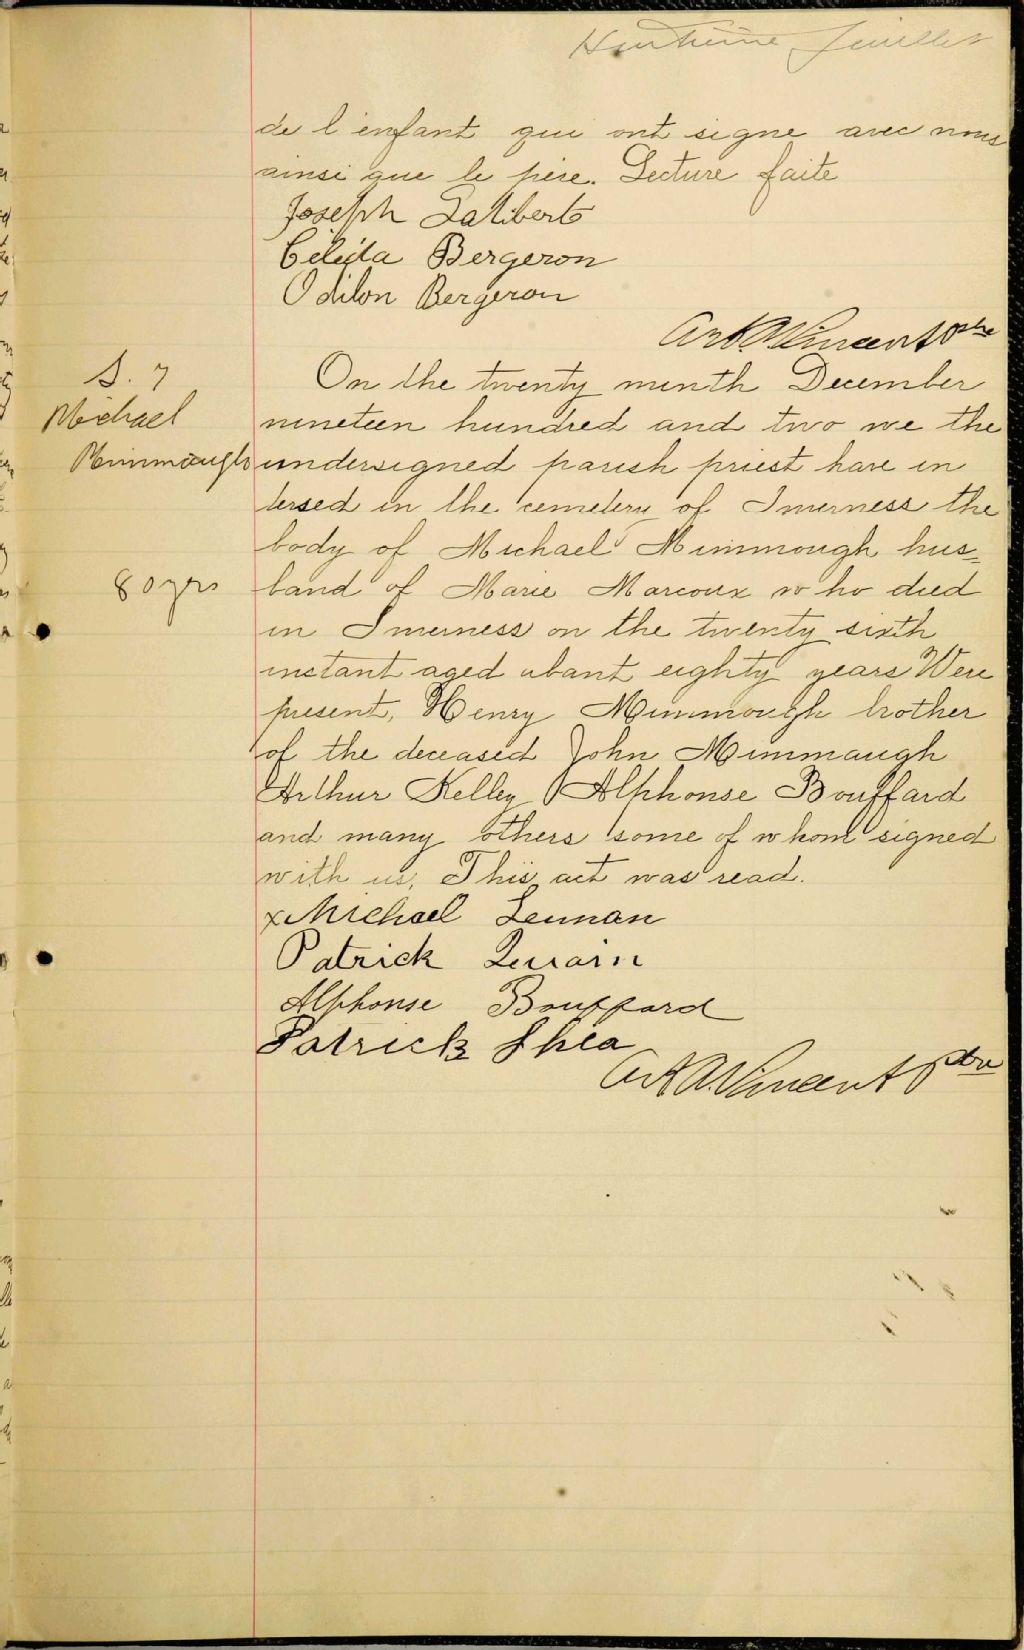 Huitième feuillet
de l enfant qui ont signe avec nous
ainsi que le père. Lecture faite
Joseph Laliberte
Bergeron
Odilon Bergeron
Vincent Ptre
S. 7
Michael
Mimmaugh
80 yrs
On the twenty ninth December
nineteen hundred and two we the
undersigned parish priest have in
tersed in the cemetery of Inverness the
body of Michael Mimmough hus=
band of Marie Marcoux who died
in Inverness on the twenty sixth
instant aged abant eighty years Were
present, Henry Mimmough brother
of the deceased John Mimmaugh
Arthur Kelley Alphonse Bouffard
and many others some of whom signed
with us, This act was read.
x Michael Lennan
Patrick
Alphonse Bouffard
Patrick Shea
Vincent Ptre